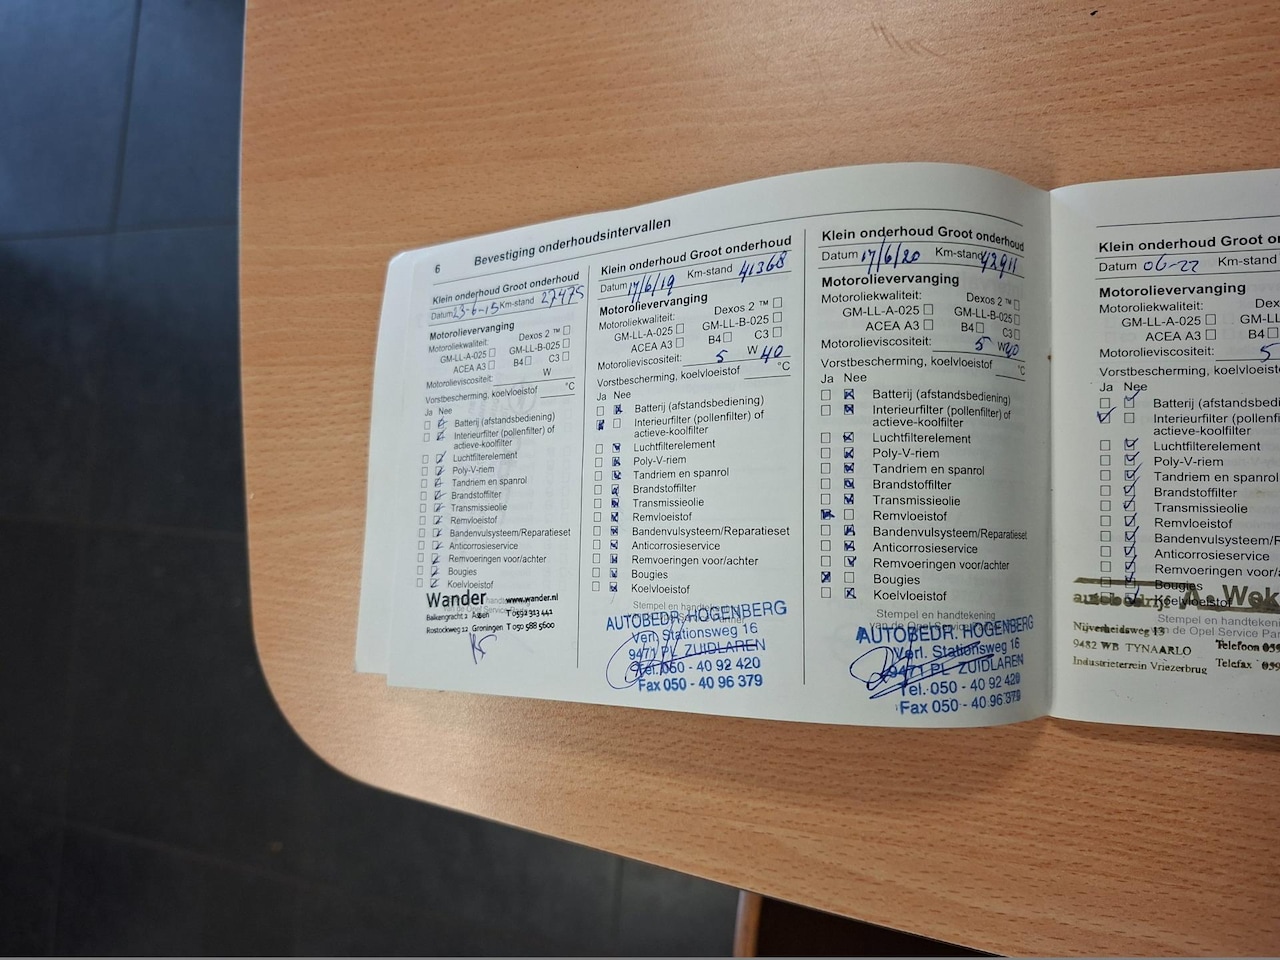 6 Bevestiging onderhoudsintervallen
Klein onderhoud Groot onderhoud
Datum 23-6-15 Km-stand 27475
Motorolievervanging
Motoroliekwaliteit: Dexos 2 ™
GM-LL-A-025 GM-LL-B-025
ACEA A3 B4 C3
Motorolieviscositeit: W
Vorstbescherming, koelvloeistof °C
Ja Nee
Batterij (afstandsbediening)
Interieurfilter (pollenfilter) of
actieve-koolfilter
Luchtfilterelement
Poly-V-riem
Tandriem en spanrol
Brandstoffilter
Transmissieolie
Remvloeistof
Bandenvulsysteem/Reparatieset
Anticorrosieservice
Remvoeringen voor/achter
Bougies
Koelvloeistof
Wander www.wander.nl
Balkengracht 2 Assen T 0592 313 441
Rostockweg 12 Groningen T 050 588 5600
Klein onderhoud Groot onderhoud
Datum 17/6/19 Km-stand 41368
Motorolievervanging
Motoroliekwaliteit: Dexos 2 ™
GM-LL-A-025 GM-LL-B-025
ACEA A3 B4 C3
Motorolieviscositeit: 5 W 40
Vorstbescherming, koelvloeistof °C
Ja Nee
Batterij (afstandsbediening)
Interieurfilter (pollenfilter) of
actieve-koolfilter
Luchtfilterelement
Poly-V-riem
Tandriem en spanrol
Brandstoffilter
Transmissieolie
Remvloeistof
Bandenvulsysteem/Reparatieset
Anticorrosieservice
Remvoeringen voor/achter
Bougies
Koelvloeistof
Stempel en handtekening
AUTOBEDR. HOGENBERG
Verl. Stationsweg 16
9471 PL ZUIDLAREN
Tel. 050 - 40 92 420
Fax 050 - 40 96 379
Klein onderhoud Groot onderhoud
Datum 17/6/20 Km-stand 42911
Motorolievervanging
Motoroliekwaliteit: Dexos 2 ™
GM-LL-A-025 GM-LL-B-025
ACEA A3 B4 C3
Motorolieviscositeit: 5 W 40
Vorstbescherming, koelvloeistof °C
Ja Nee
Batterij (afstandsbediening)
Interieurfilter (pollenfilter) of
actieve-koolfilter
Luchtfilterelement
Poly-V-riem
Tandriem en spanrol
Brandstoffilter
Transmissieolie
Remvloeistof
Bandenvulsysteem/Reparatieset
Anticorrosieservice
Remvoeringen voor/achter
Bougies
Koelvloeistof
Stempel en handtekening
AUTOBEDR. HOGENBERG
Verl. Stationsweg 16
9471 PL ZUIDLAREN
Tel. 050 - 40 92 420
Fax 050 - 40 96 379
Klein onderhoud Groot
Datum 06-22 Km-stand
Motorolievervanging
Motoroliekwaliteit:
GM-LL-A-025 GM-LL-
ACEA A3 B4
Motorolieviscositeit: 5
Vorstbescherming, koelvloeistof
Ja Nee
Batterij (afstandsbedien
Interieurfilter (pollenfilter
actieve-koolfilter
Luchtfilterelement
Poly-V-riem
Tandriem en spanrol
Brandstoffilter
Transmissieolie
Remvloeistof
Bandenvulsysteem/R
Anticorrosieservice
Remvoeringen voor/a
Bougies
Koelvloeistof
Stempel en handtekening
van de Opel Service
autobedrijf A. Wek
Nijverheidsweg 13 Telefoon 059
9482 WB TYNAARLO Telefax 059
Industrieterrein Vriezerbrug